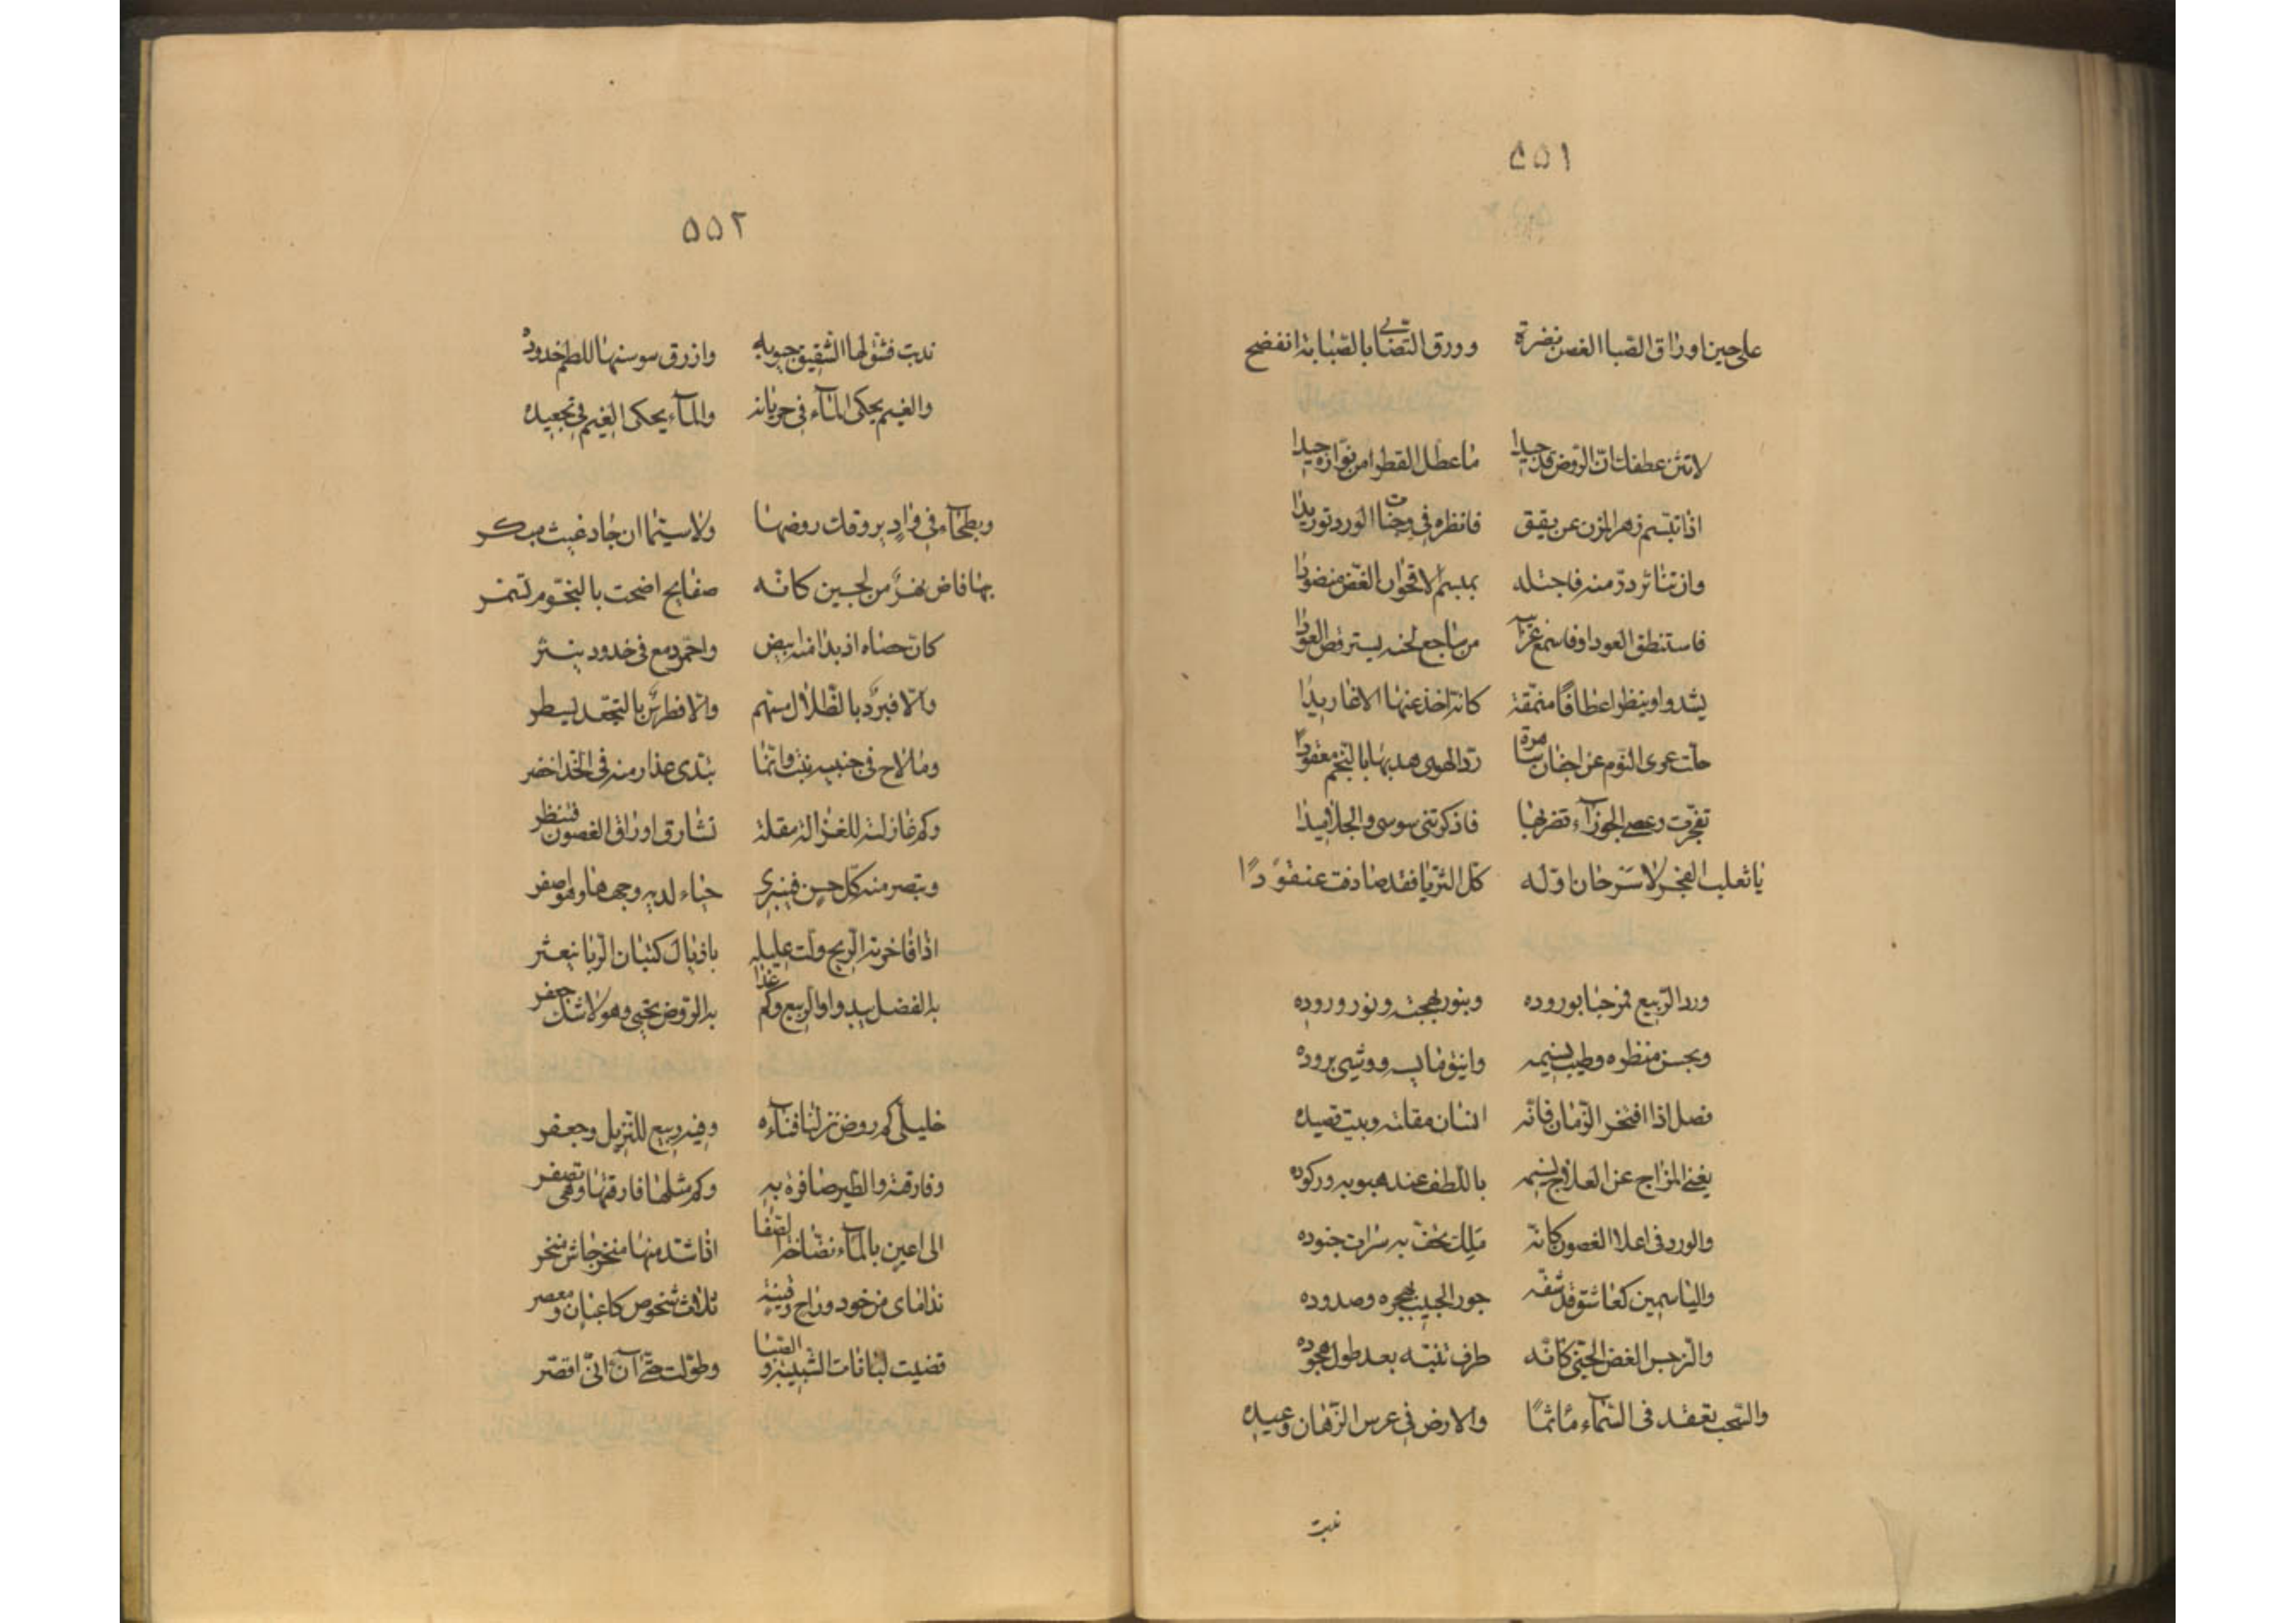 ٥٥١
على حين اوراق الصبا الغصن نضرة وورق التصابي بالصبابة انفضح
لا تثن عطفك ان الروض قد جيدا ما عطل القطر من نواره جيدا
اذا تبسم زهر المزن عن يقق فانظره في وجنات الورد توريدا
وان تناثر در منه فاجتله بمبسم الاقحوان الغض منضودا
فاستنطق العود او فاسمع غرائب من ساجع لحنه يسترقص العودا
يشدو وينظر اعطافا منمقة كانه اخذ عنها الاغاريدا
حلت عرى النوم عن اجفان ساهرة رد الهوى هدبها بالنجم معقودا
تفجرت وعصى الجوزاء تضربها فاذكرتني موسى والجلاميدا
يا ثعلب الفجر لا سرحان اوله كل الثريا فقد صادفت عنقودا
ورد الربيع فمرحبا بوروده وبنور بهجته ونور وروده
وبحسن منظره وطيب نسيمه وانيق مابسه ووشي بروده
فصل اذا افتخر الزمان فانه انسان مقلته وبيت قصيده
يغني المزاج عن العلاج نسيمه باللطف عند هبوبه وركوده
والورد في اعلا الغصون كانه ملك تحف به سراة جنوده
والياسمين كعاشق قد شفه جور الحبيب بهجره وصدوده
والنرجس الغض الجني كانه طرف تنبه بعد طول هجوده
والسحب تعقد في السماء مأتما والارض في عرس الزمان وعيده
ندبت
٥٥٢
ندبت فشق لها الشقيق جيوبه وازرق سوسنها للطم خدوده
والغيم يحكي الماء في جريانه والماء يحكي الغيم في تجعيده
وبطحاء في واد يروقك روضها ولا سيما ان جاد غيث مبكر
بها فاض نهر من لجين كانه صفايح اضحت بالنجوم تسمر
كان حصاه اذ بدا منه ابيض واحمر دمع في خدود ينثر
والا فبرد بالظلال مسهم والا فطرس بالتجعد يسطر
وما لاح في جنبيه نبت وانما تبدى عذار منه في الخد اخضر
وكم غازلته للغزالة مقلة تشارق اوراق الغصون فتنظر
وتبصر منه كل حسن فينبري حياء لديه وجهها وهو اصفر
اذا فاخرته الريح ولت عليلة باذيال كثبان الربا تتعثر
به الفضل يبدو والربيع وكم غدا به الروض يحيى وهو لا شك جعفر
خليلي كم روض نزلنا فناءه وفيه ربيع للنزيل وجعفر
وفارقته والطير صافرة به وكم مثلها فارقتها وهي تصفر
الى اعين بالماء نضاخة الصفا اذا شد منها منخر جاش منخر
نداماي من خود وراح وقينة ثلاث شخوص كاعبان ومعصر
قضيت لبانات الشبيبة والصبا وطولت حتى آن اني اقصر